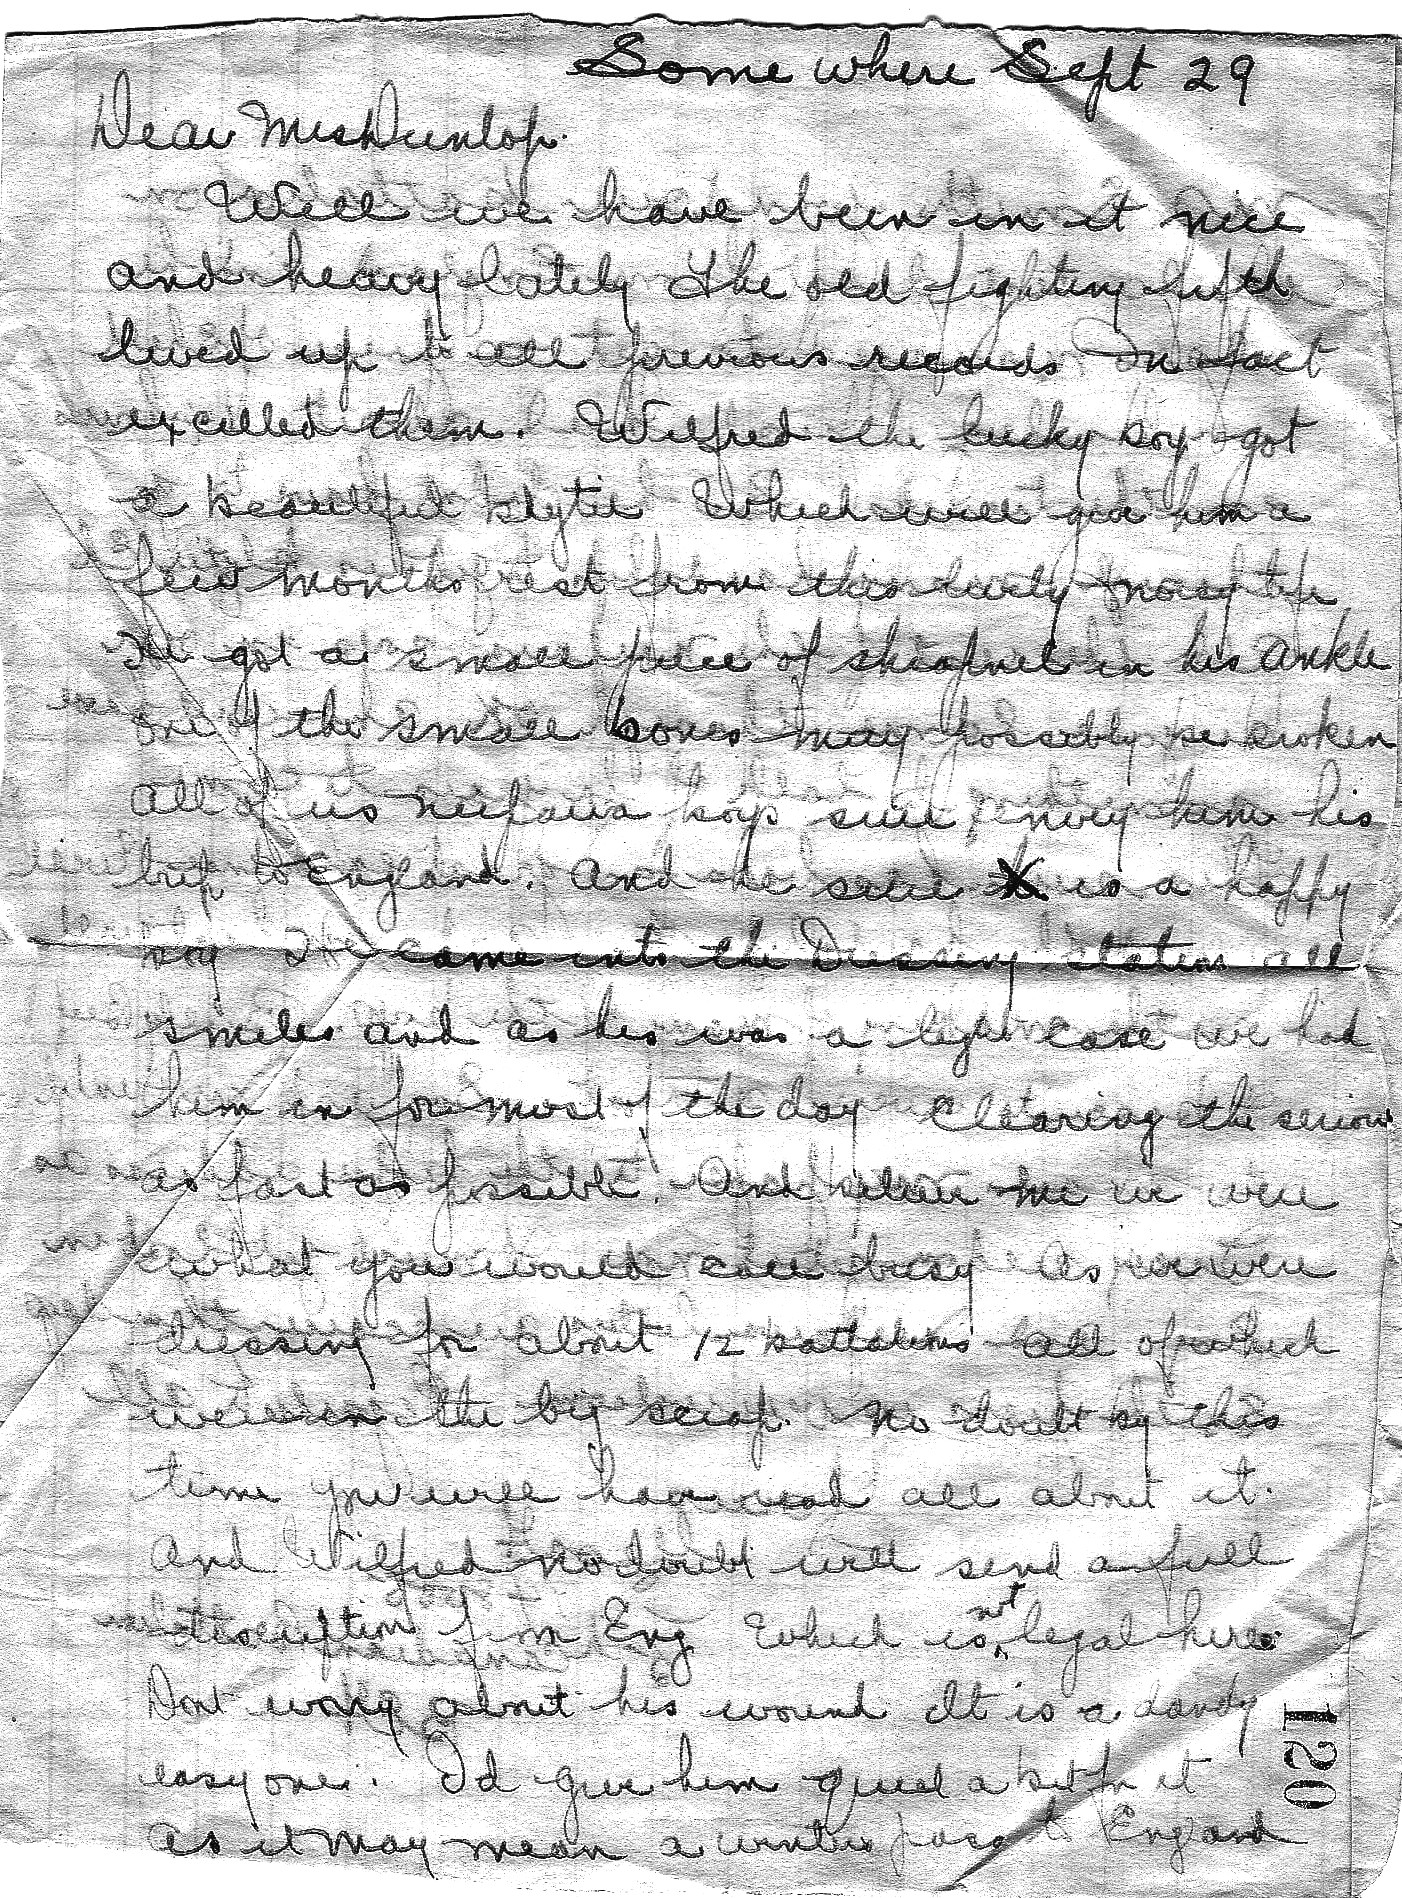 Some where Sept 29
Dear Mrs Dunlop.
Well we have been in it nice
and heavy lately The old fighting fifth
lived up to all previous records In fact
excelled them. Wilfred the lucky boy got
a beautiful blytie Which will give him a
few months rest from this noisy life
He got a small piece of shrapnel in his ankle
one of the small bones may possibly be broken
All of us neepawa boys sure envey him his
trip to England. And he sure is a happy
boy He came into the Dressing station all
smiles and as his was a light case we had
him in for most of the day Clearing the serious
as fast as possible. And believe me we were
what you would call busy As we were
dressing for about 12 battalions all of which
were in the big scrap. No doubt by this
time you will have read all about it.
And Wilfred no doubt will send a full
description from Eng Which is not legal here.
Dont worry about his wound It is a dandy
easy one. I'd give him quite a bit for it
as it may mean a winter pass to England
120